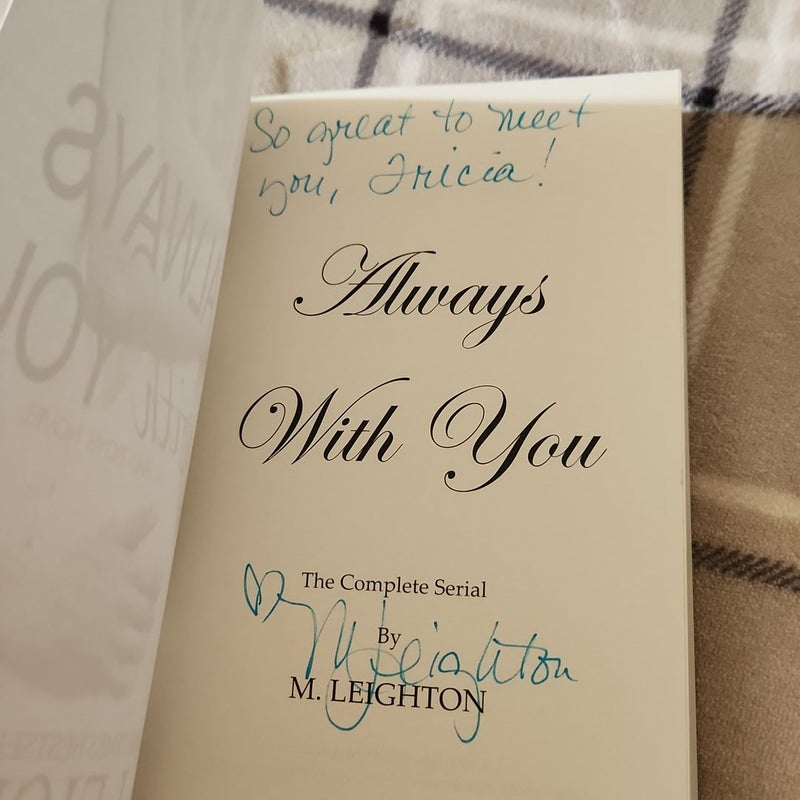 So great to meet
you, Tricia!
Always
With You
The Complete Serial
By
M Leighton
M. LEIGHTON
ALWAYS
YOU